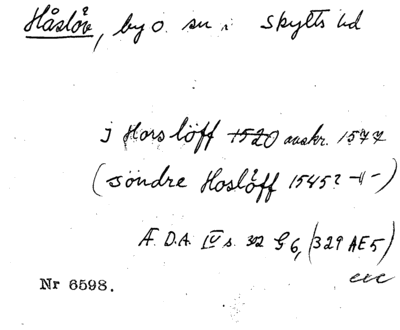 Håslöv, by o. sn i Skytts hd
J Horslöff 1520 avskr. 1577
(Söndre Hoslöff 1545? -"-)
Æ. D.A. IV s. 322 G 6, (329 AE5)
etc
Nr 6598.